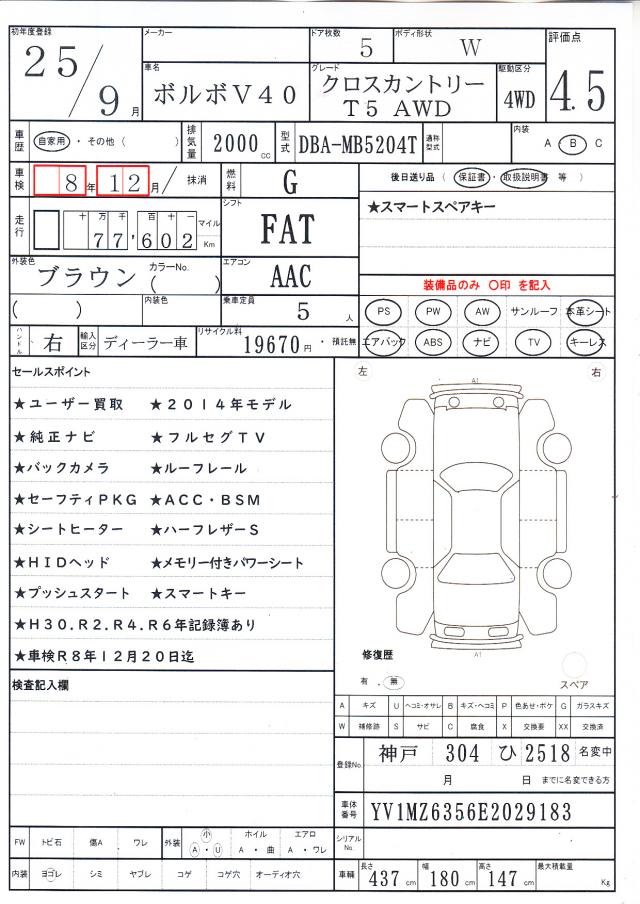 初年度登録 25/9月
メーカー
ドア枚数 5
ボディ形状 W
評価点 4.5
車名 ボルボV40
グレード クロスカントリー T5 AWD
駆動区分 4WD
車歴 自家用・その他( )
排気量 2000cc
型式 DBA-MB5204T
通称型式
内装 A B C
車検 8年12月/抹消
燃料 G
後日送り品(保証書・取扱説明書 等)
走行 十万千百十一 77,602 マイル Km
シフト FAT
★スマートスペアキー
外装色 ブラウン
カラーNo. ( )
エアコン AAC
装備品のみ 〇印 を記入
( )
内装色
乗車定員 5人
PS PW AW サンルーフ 本革シート
エアバック ABS ナビ TV キーレス
ハンドル 右
輸入区分 ディーラー車
リサイクル料 19670円・預託無
セールスポイント
★ユーザー買取 ★2014年モデル
★純正ナビ ★フルセグTV
★バックカメラ ★ルーフレール
★セーフティPKG ★ACC・BSM
★シートヒーター ★ハーフレザーS
★HIDヘッド ★メモリー付きパワーシート
★プッシュスタート ★スマートキー
★H30.R2.R4.R6年記録簿あり
★車検R8年12月20日迄
左 右
A1
A1
修復歴
有.無
スペア
検査記入欄
A キズ U ヘコミ・オサレ B キズ・ヘコミ P 色あせ・ボケ G ガラスキズ
W 補修跡 S サビ C 腐食 X 交換要 XX 交換済
登録No. 神戸 304 ひ 2518 名変中
月 日 までに名変できる方
車体番号 YV1MZ6356E2029183
シリアルNo.
FW トビ石 傷A ワレ 外装 小 A・U ホイル A・曲 エアロ A・ワレ
内装 ヨゴレ シミ ヤブレ コゲ コゲ穴 オーディオ穴
車輛 長さ 437cm 幅 180cm 高さ 147cm 最大積載量 Kg